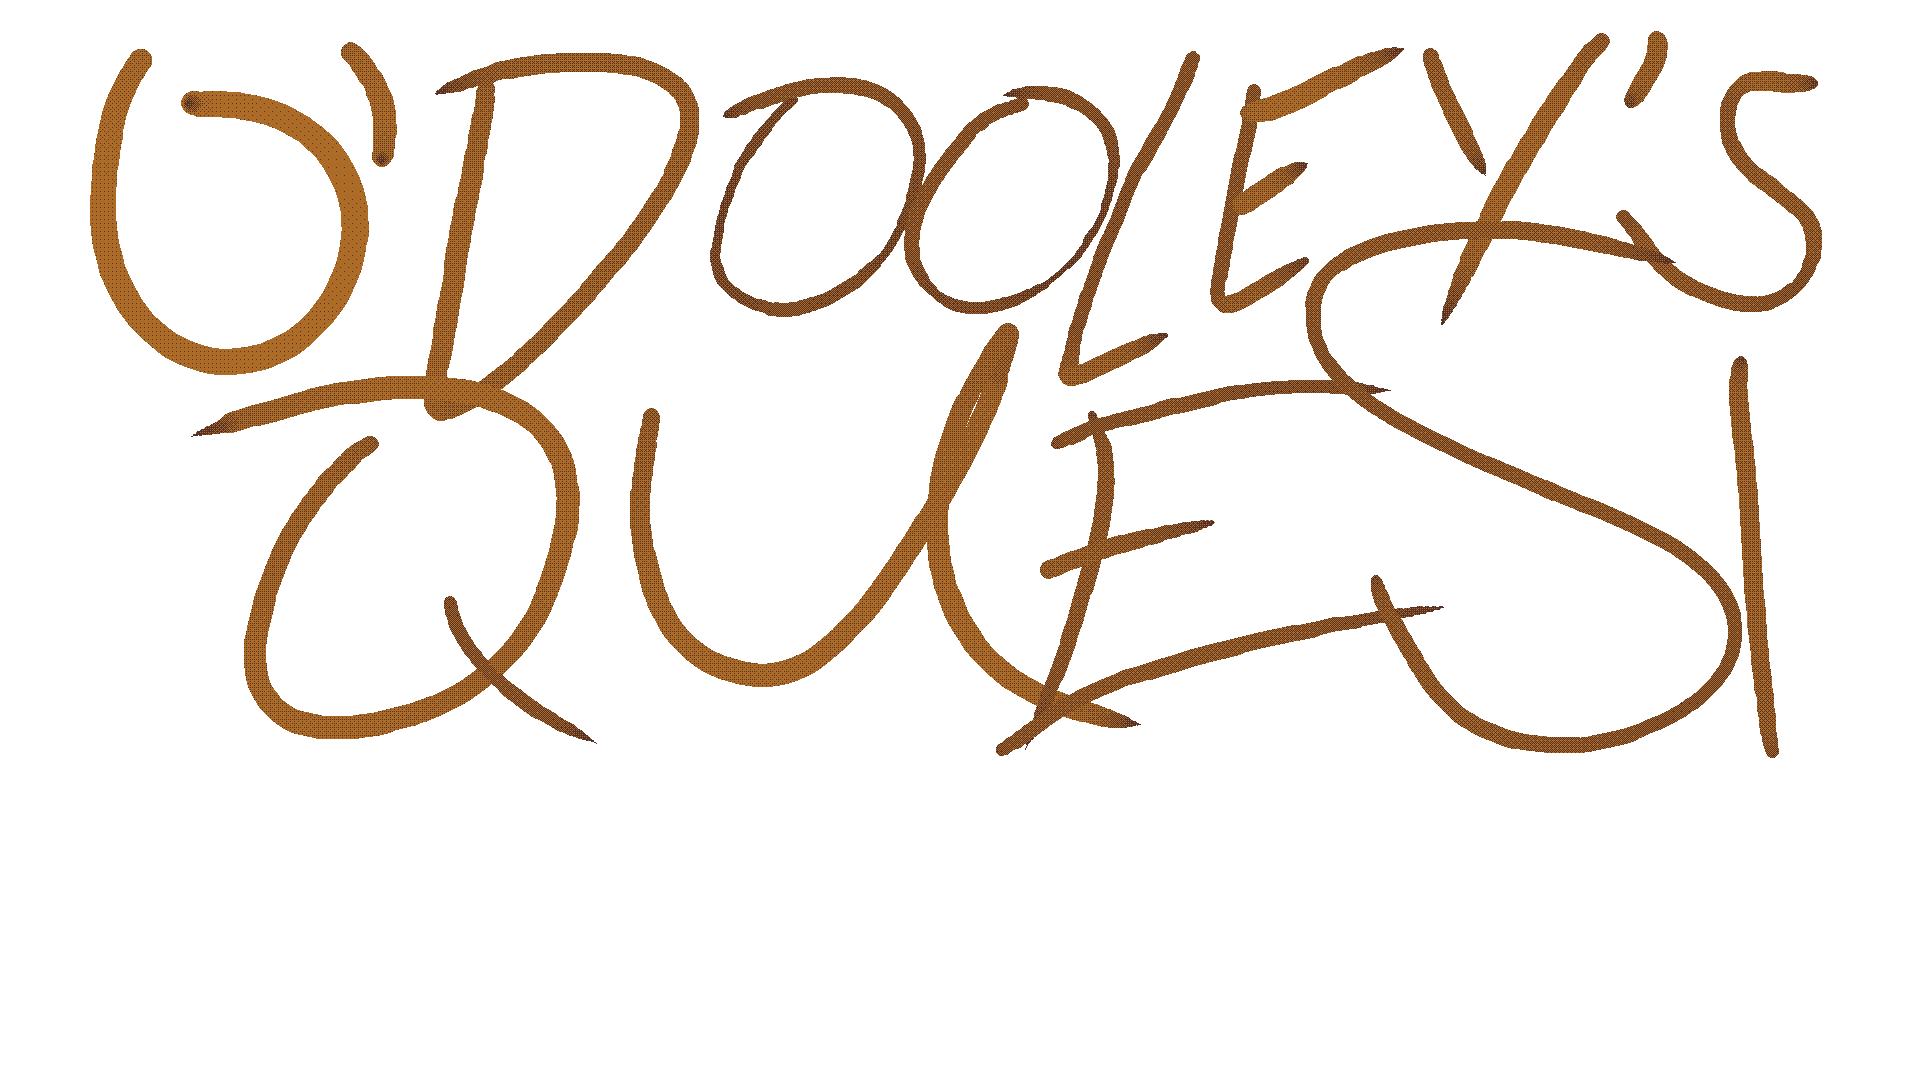 O'DOOLEY'S
QUESI